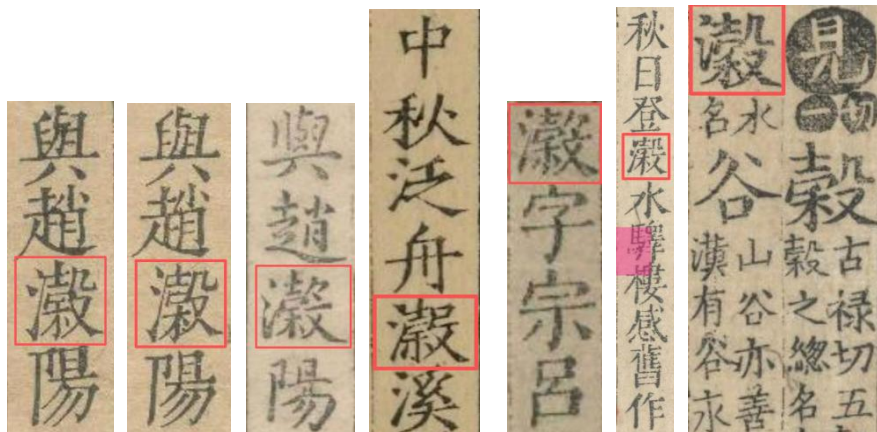 與趙瀔陽
與趙瀔陽
與趙瀔陽
中秋泛舟瀔溪
瀔字宗呂
秋日登瀔水驛樓感舊作
見切一穀古禄切五穀之總名
瀔水名谷山谷亦善漢有谷永